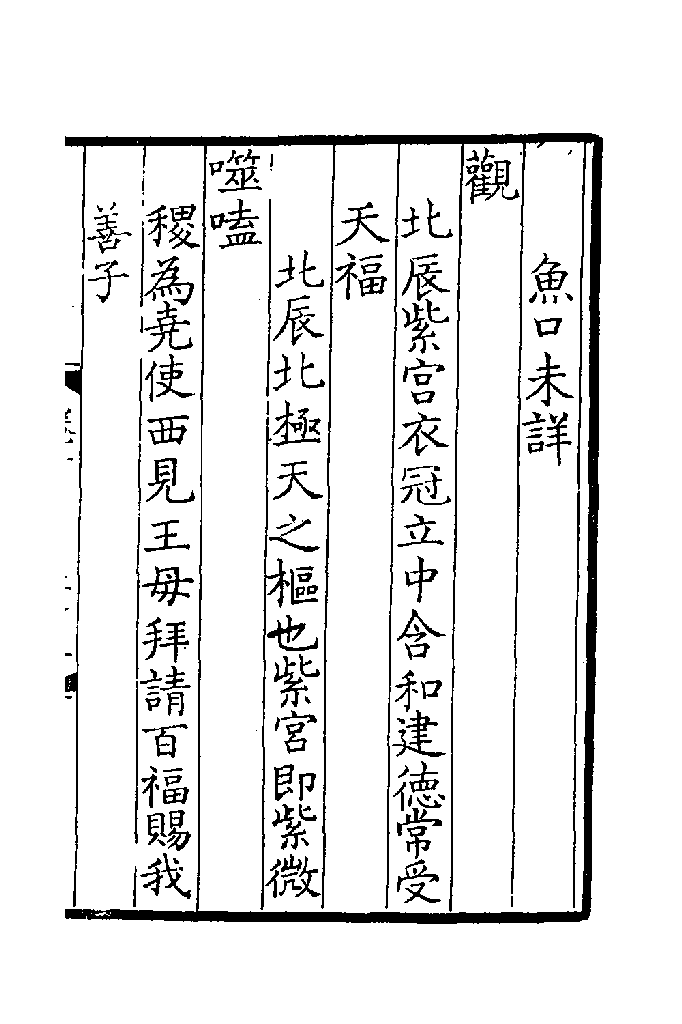 魚口未詳
觀
北辰紫宫衣冠立中含和建德常受
天福
北辰北極天之樞也紫宮即紫微
噬嗑
稷為堯使西見王母拜請百福賜我
善子